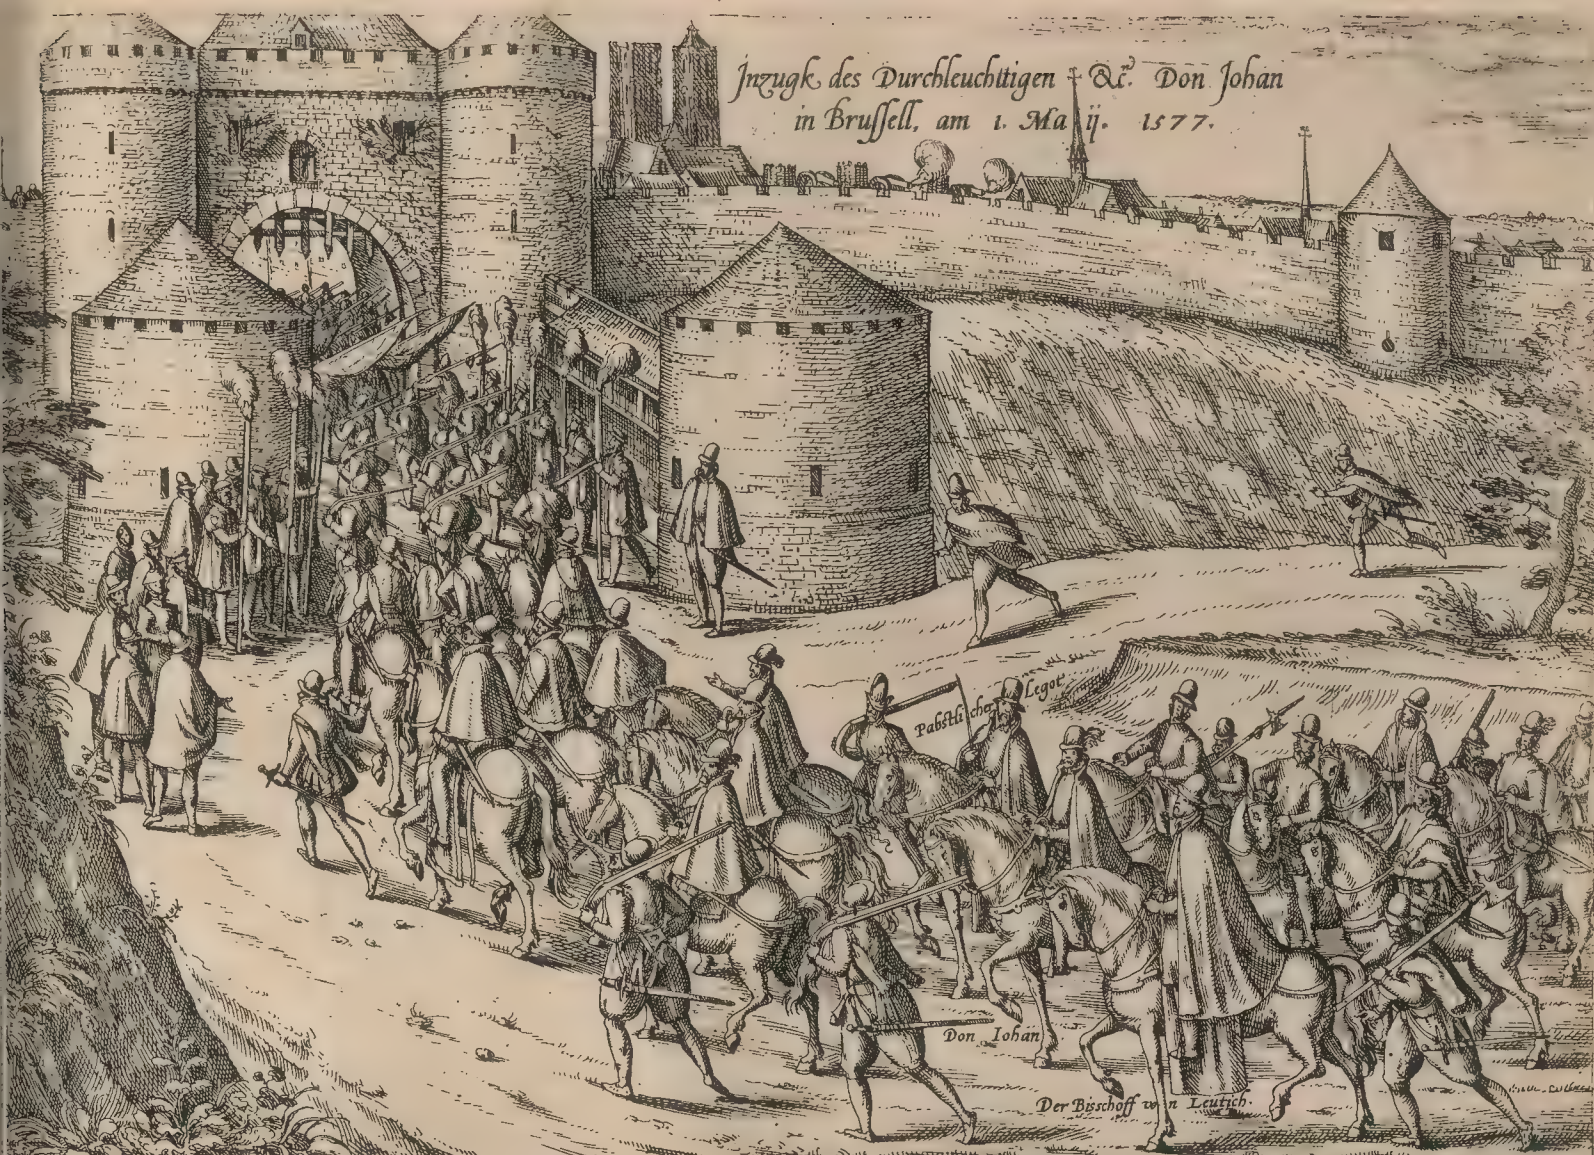 Jnzugk des Durchleuchttigen &c. Don Johan
in Brussell, am 1. Ma ij. 1577.
Pabstlicher Legot
Don Iohan
Der Bisschoff von Leutich.